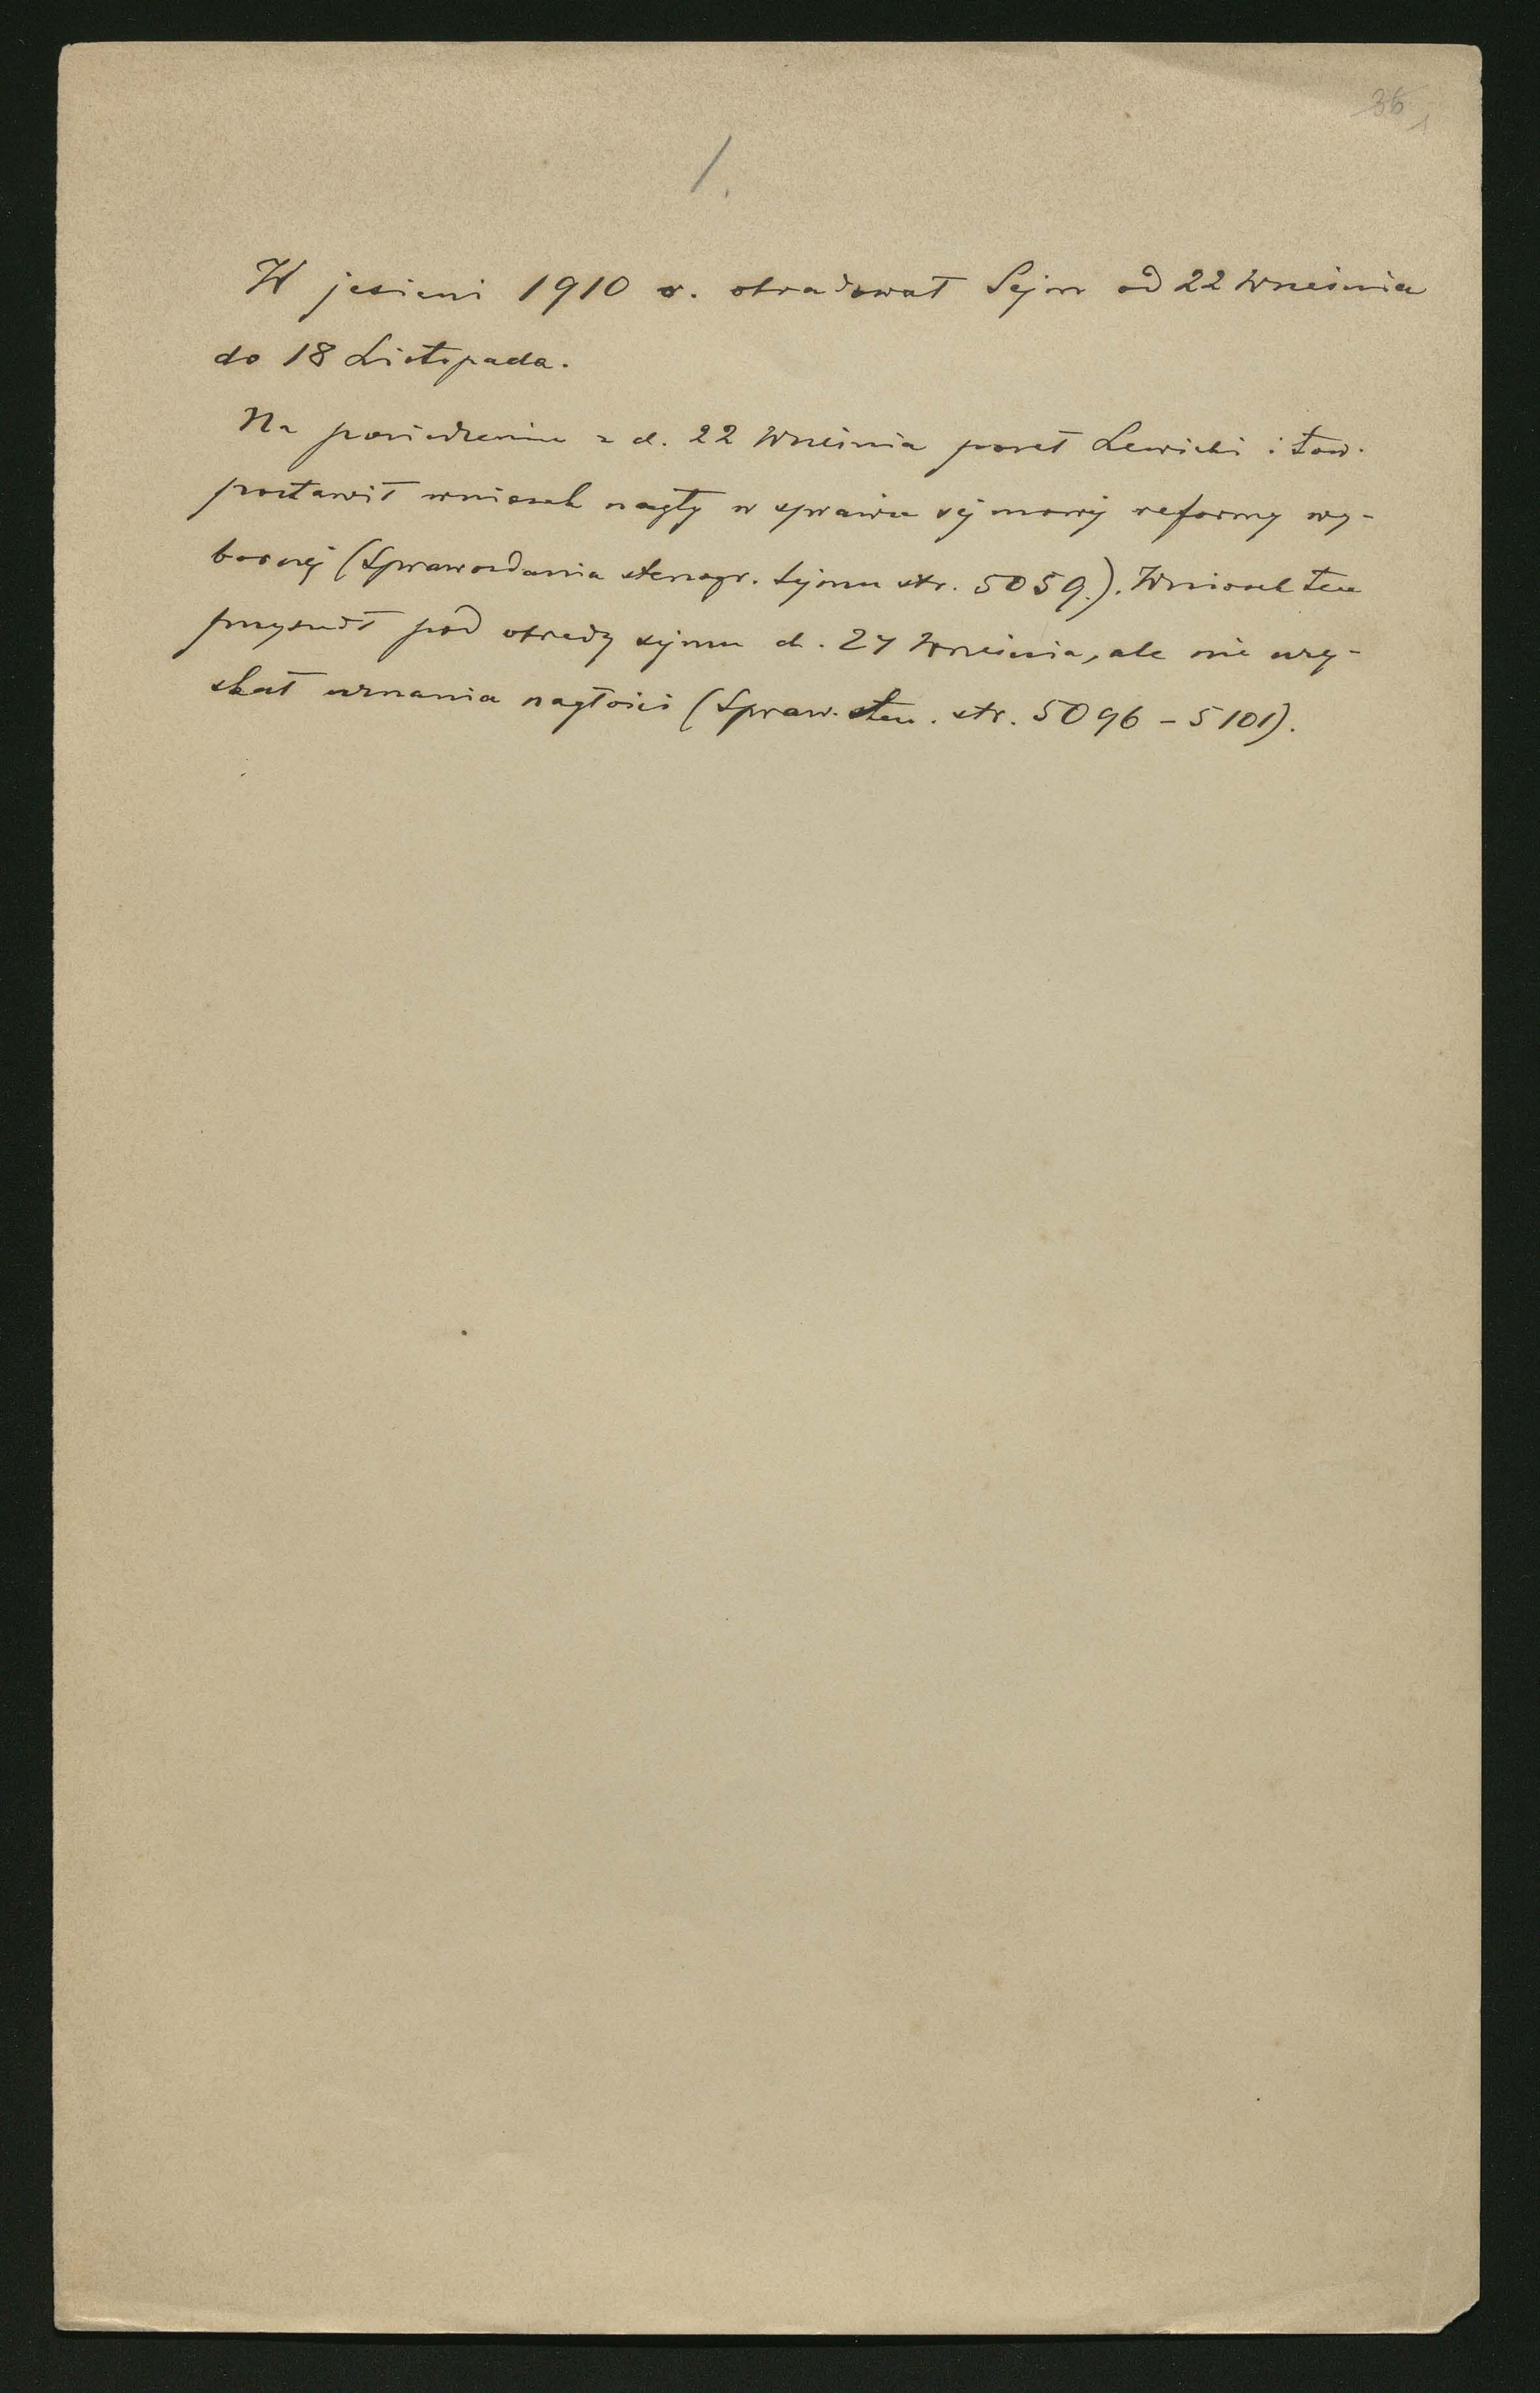 1.
W jesieni 1910 r. obradował Sejm od 22 Września
do 18 Listopada.
Na posiedzeniu z d. 22 Września poseł Lewicki i tow.
postawił wniosek nagły w sprawie sejmowej reformy wy-
borczej (Sprawozdania stenogr. Sejmu str. 5059.). Wniosek ten
przyszedł pod obrady sejmu d. 27 Września, ale nie uzy-
skał uznania nagłości (Spraw. sten. str. 5096 - 5101).